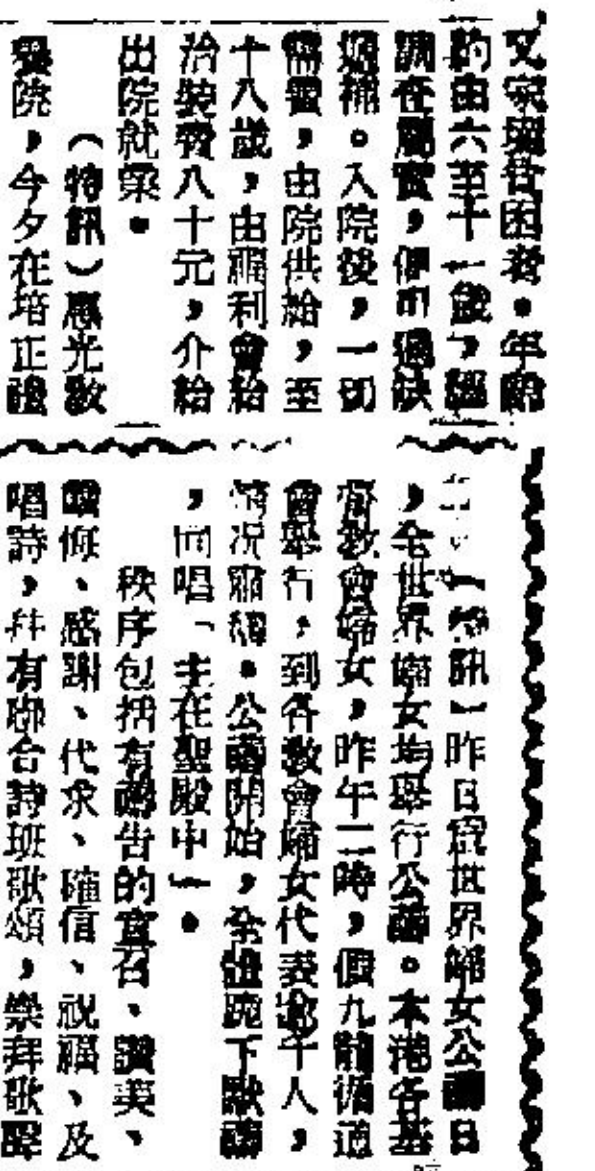 又家境苦困者。年齡
約由六至十一歲,經
調在屬實,便可遞缺
遞補。入院後,一切
需費,由院供給,至
十八歲,由福利會給
治裝費八十元,介給
出院就業。
(特訊)惠光敎
養院,今夕在培正禮
【特訊】昨日爲世界婦女公禱日
,全世界婦女均舉行公禱。本港各基
督敎會婦女,昨午二時,假九龍循道
會舉行,到各敎會婦女代表逾千人,
情况肅穆。公禱開始,全體跪下默禱
,同唱「主在聖殿中」。
秩序包括有禱告的宣召、讚美、
懺悔、感謝、代求、確信、祝福、及
唱詩,幷有聯合詩班歌頌,崇拜歌聲